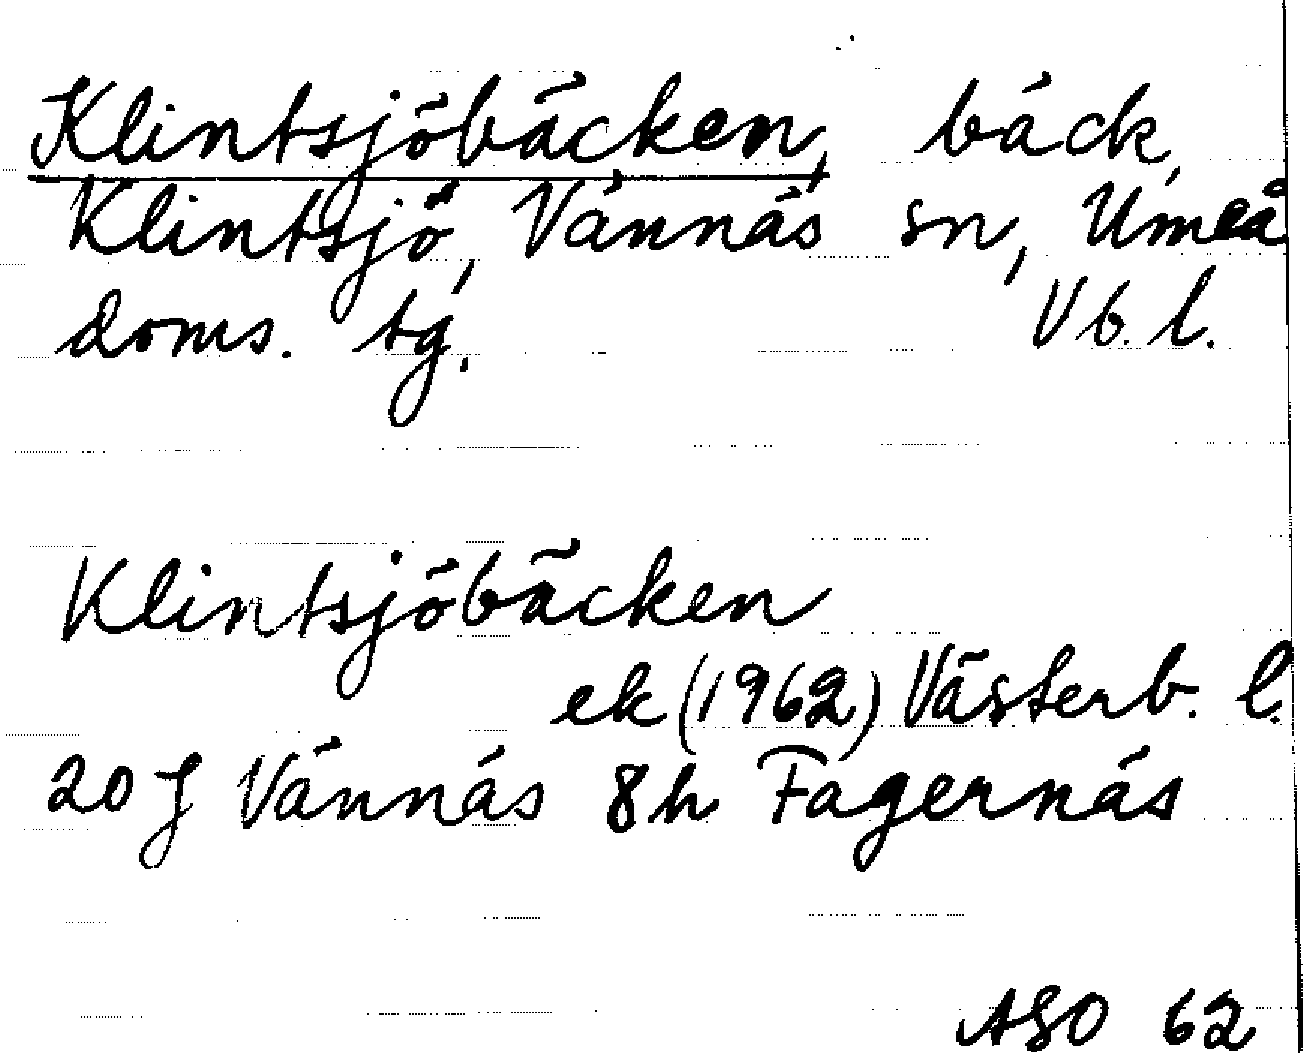 Klintsjöbäcken, bäck,
Klintsjö, Vännäs sn, Umeå
doms. tg. Vb. l.
Klintsjöbäcken
ek (1962) Västerb. l.
20 J Vännäs 8h Fagernäs
ASO 62